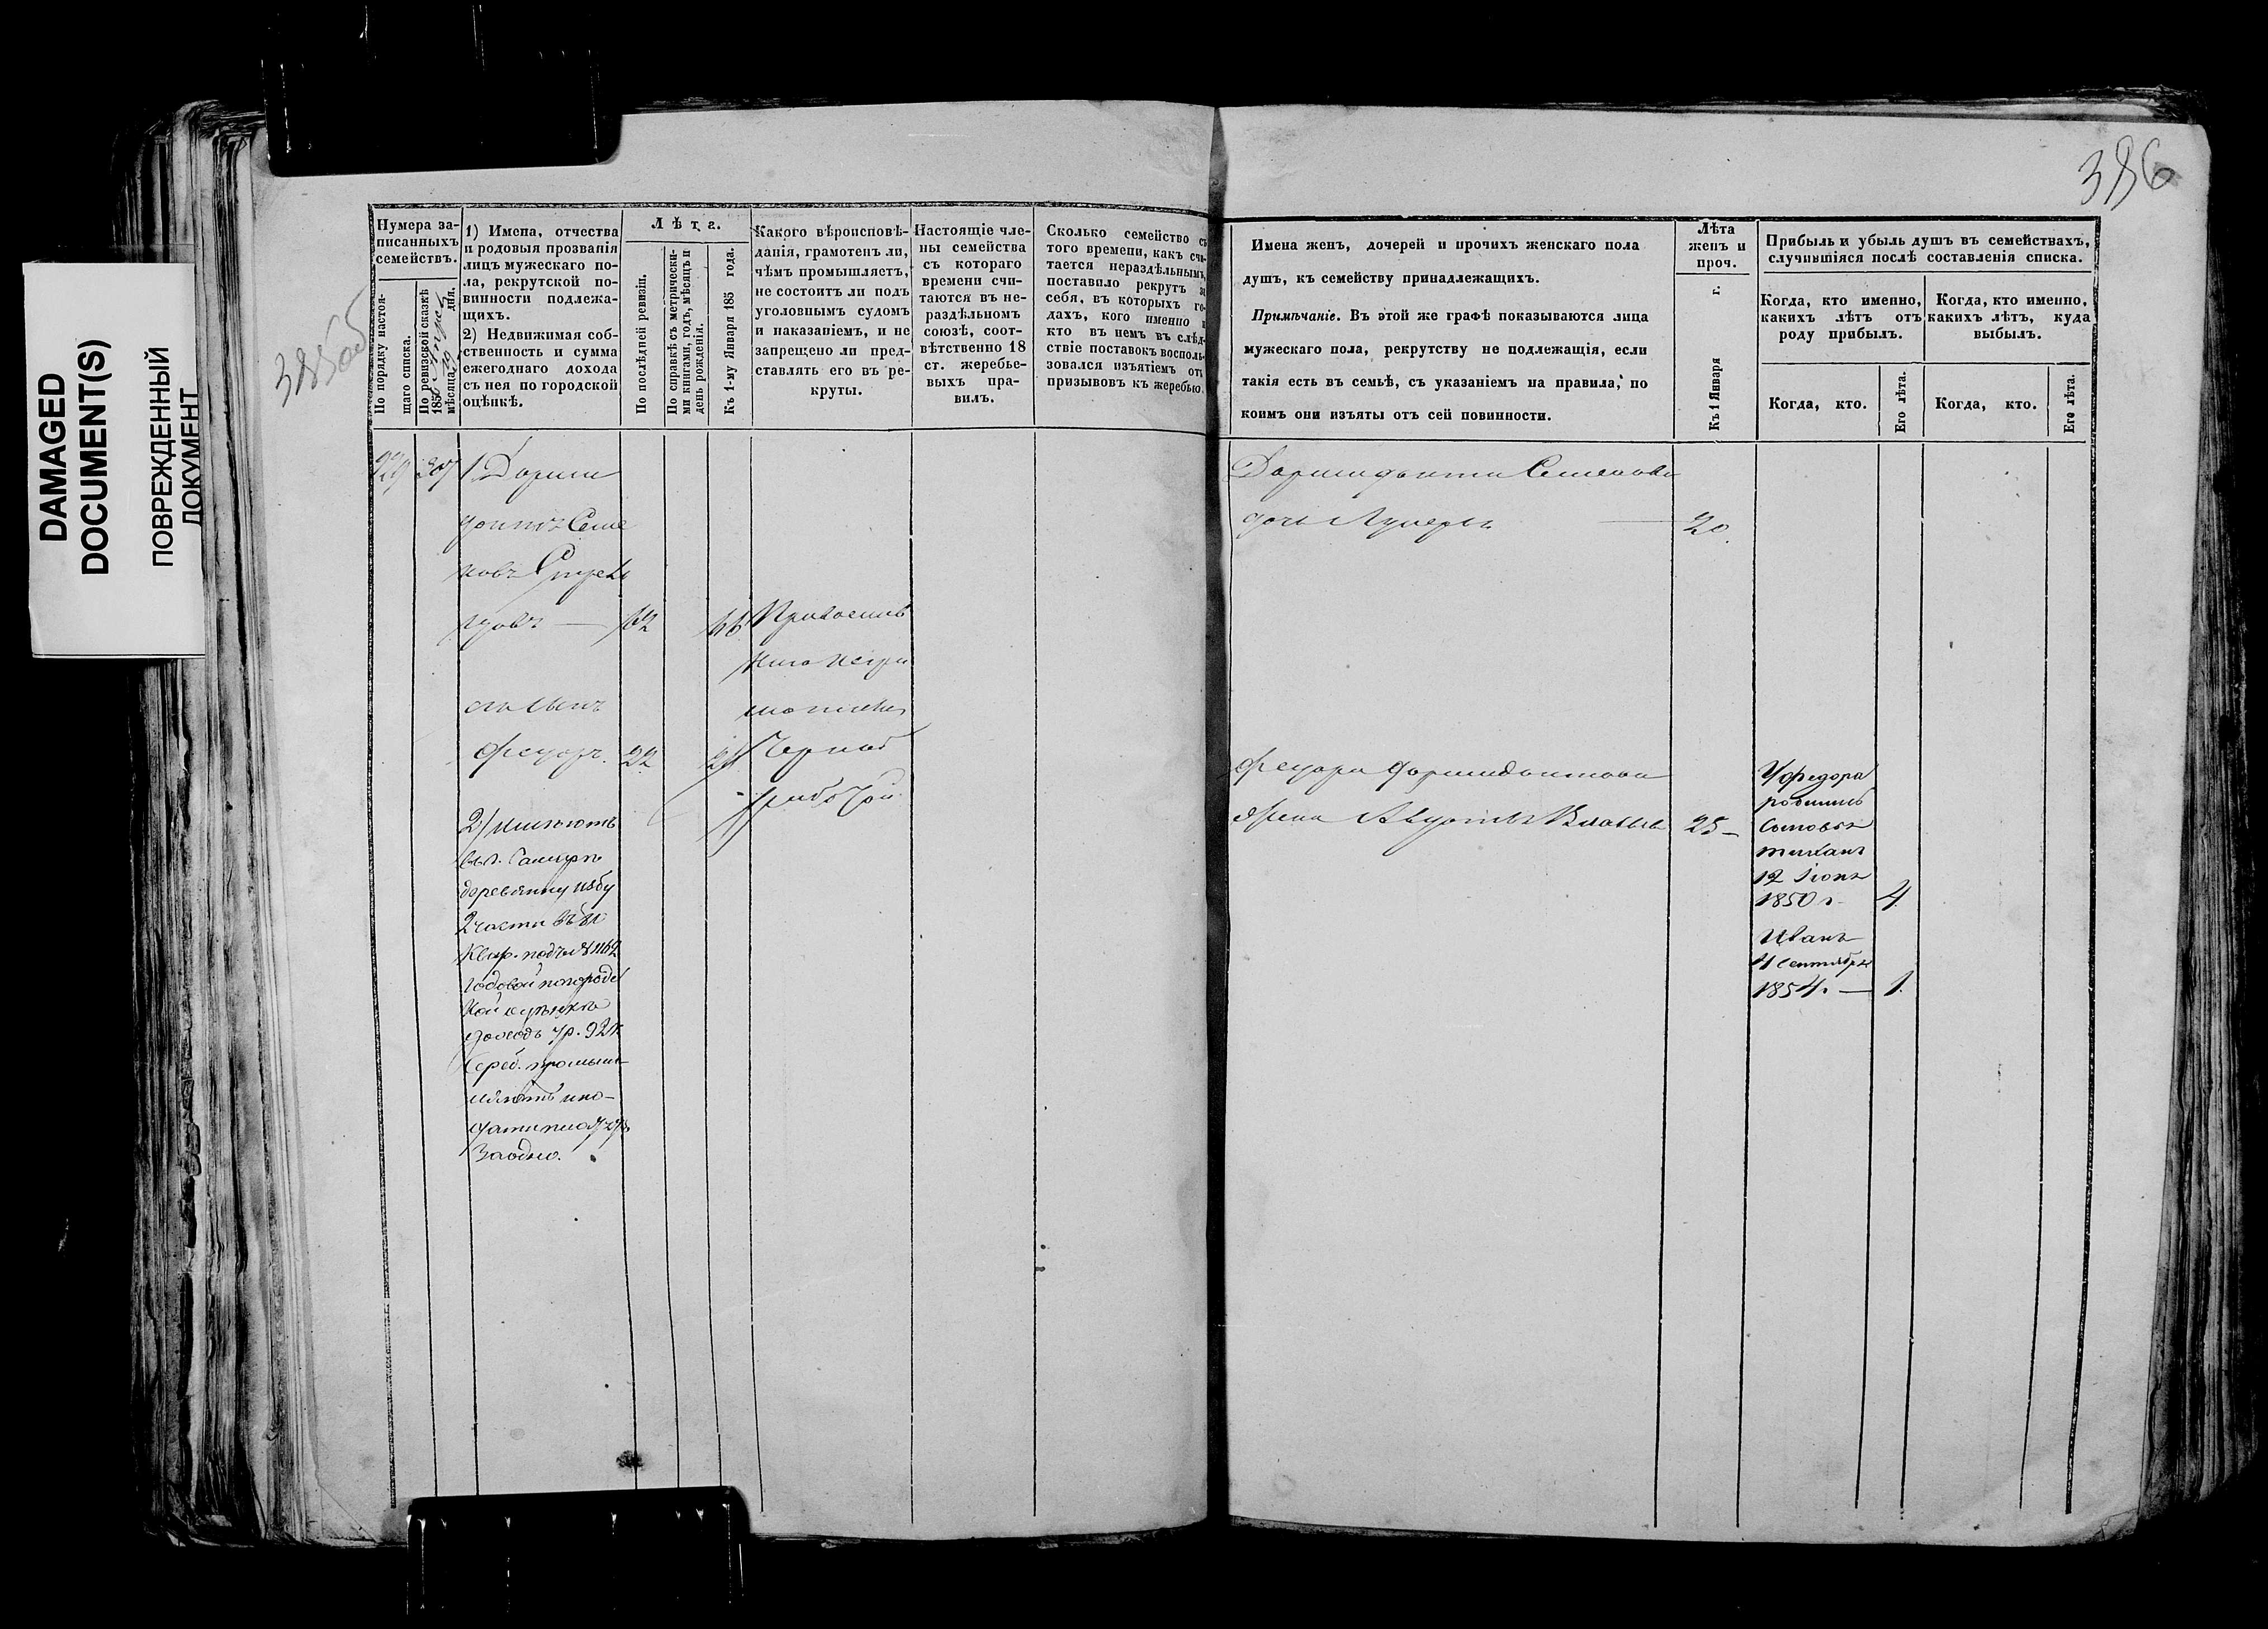 DAMAGED
DOCUMENT(S)
ПОВРЕЖДЕННЫЙ
ДОКУМЕНТ
385об
386
Нумера за-
писанныхъ
семействъ.
По порядку настоя-
щаго списка.
По ревизской сказкѣ
185
мѣсяца дня.
1) Имена, отчества
и родовыя прозванія
лицъ мужескаго по-
ла, рекрутской по-
винности подлежа-
щихъ.
2) Недвижимая соб-
ственность и сумма
ежегоднаго дохода
съ нея по городской
оцѣнкѣ.
Лѣта.
По послѣдней ревизіи.
По справкѣ съ метрически-
ми книгами, годъ, мѣсяцъ и
день рожденія.
Къ 1-му Января 185 года.
Какого вѣроисповѣ-
данія, грамотенъ ли,
чѣмъ промышляетъ,
не состоитъ ли подъ
уголовнымъ судомъ
и наказаніемъ, и не
запрещено ли пред-
ставлять его въ ре-
круты.
Настоящіе чле-
ны семейства
съ котораго
времени счи-
таются въ не-
раздѣльномъ
союзѣ, соот-
вѣтственно 18
ст. жеребье-
выхъ пра-
вилъ.
Сколько семейство съ
того времени, какъ счи-
тается нераздѣльнымъ,
поставило рекрутъ за
себя, въ которыхъ го-
дахъ, кого именно и
кто въ немъ въ слѣд-
ствіе поставокъ восполь-
зовался изъятіемъ отъ
призывовъ къ жеребью.
Имена женъ, дочерей и прочихъ женскаго пола
душъ, къ семейству принадлежащихъ.
Примѣчаніе. Въ этой же графѣ показываются лица
мужескаго пола, рекрутству не подлежащія, если
такія есть въ семьѣ, съ указаніемъ на правила, по
коимъ они изъяты отъ сей повинности.
Лѣта
женъ и
проч.
Къ 1 Января г.
Прибыль и убыль душъ въ семействахъ,
случившіяся послѣ составленія списка.
Когда, кто именно,
какихъ лѣтъ отъ
роду прибылъ.
Когда, кто именно,
какихъ лѣтъ, куда
выбылъ.
Когда, кто.
Его лѣта.
Когда, кто.
Его лѣта.
929 307 1. Дорми
донтъ Семе
новъ
62 66 Православ
наго негра
его сынъ мотный
Федоръ. 22 Черной
работой
2) Имѣютъ
деревянную избу
2 части въ
Квар. подъ № 1162
годовой по город
ской оцѣнкѣ
доходъ 92 к.
Сереб. промыш
ляютъ
Заодно.
Дормидонта Семенова
дочь 20.
Федора Дормидонтова
жена Авдотья 25 —
У Федора
родились
Сыновья
12 Іюня
1850 г. 4
Иванъ
Сентября
1854. — 1